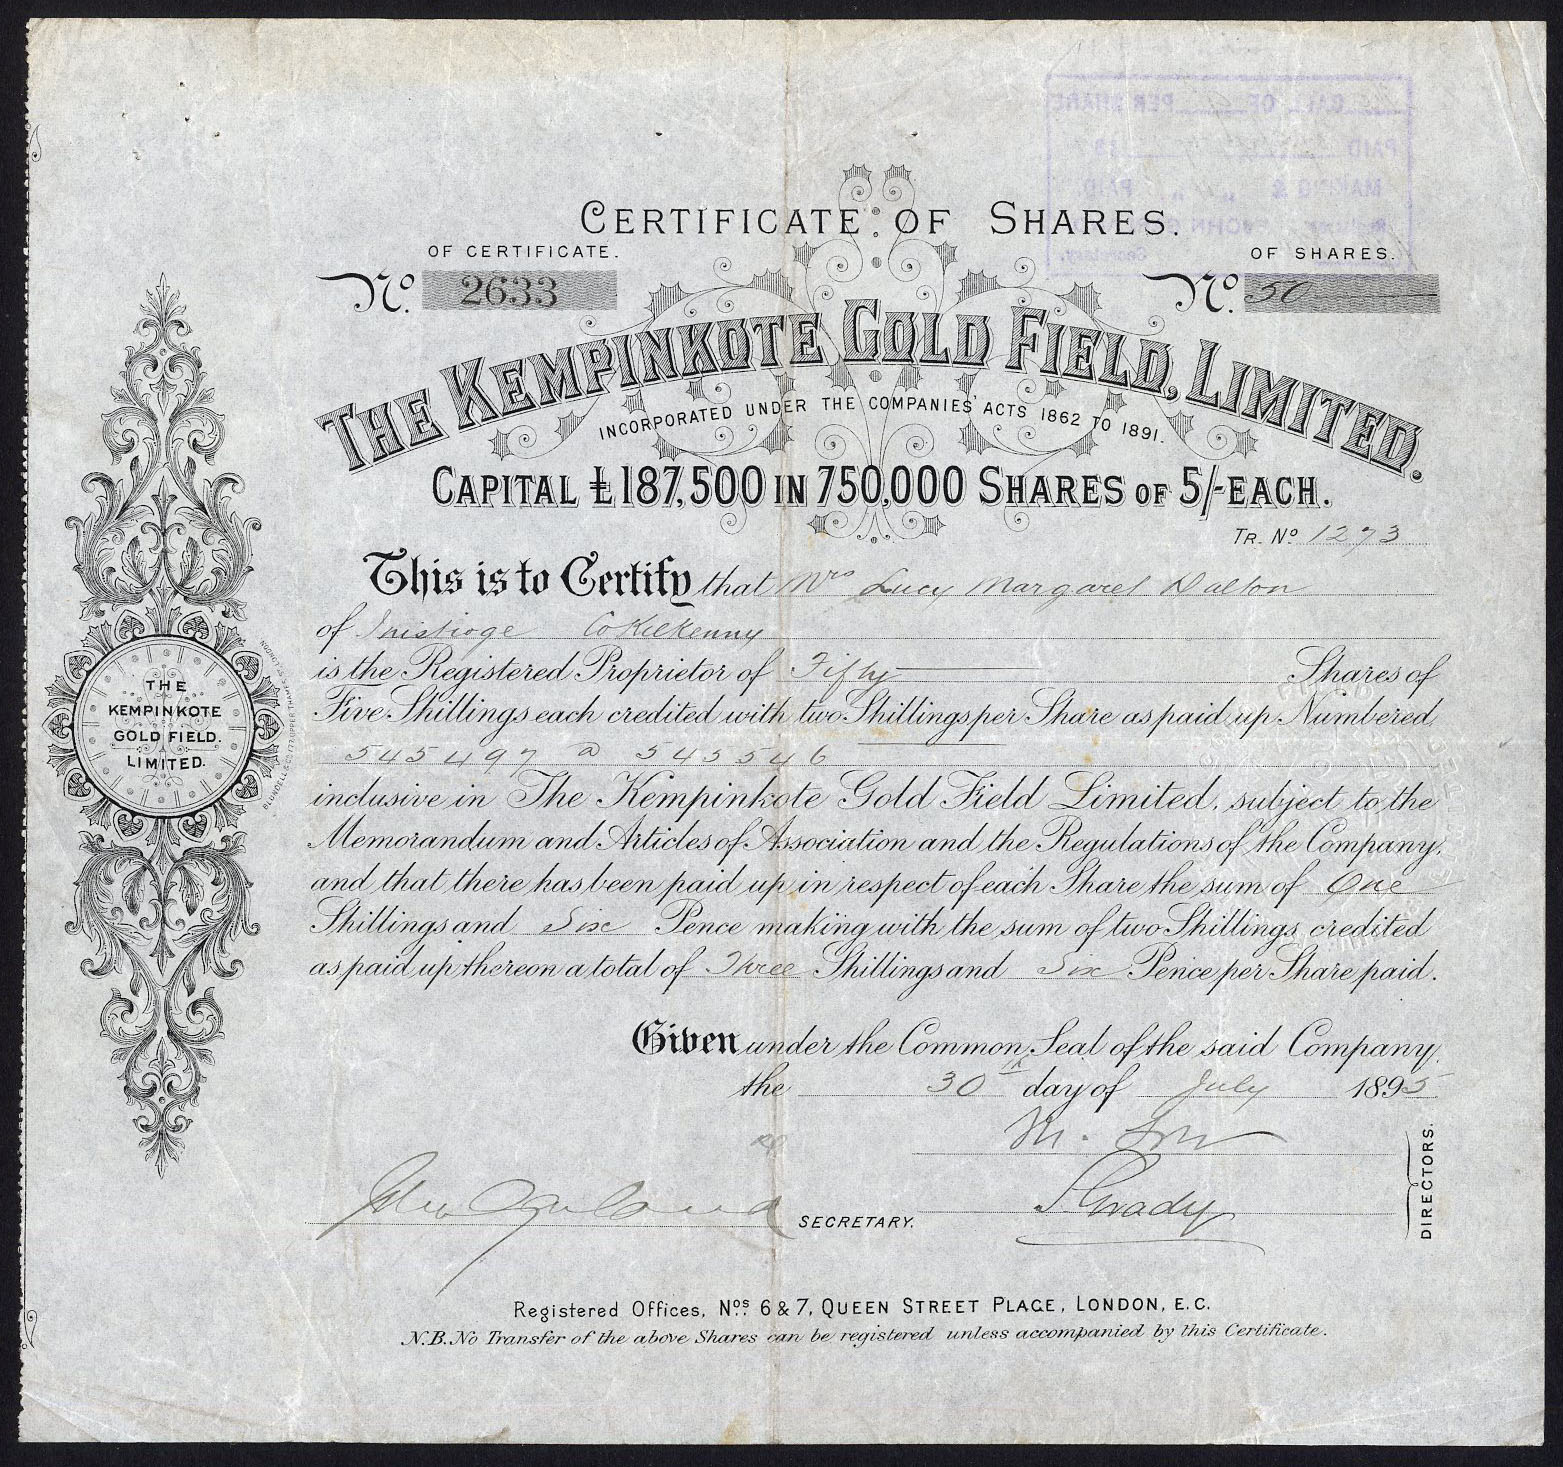 CERTIFICATE OF SHARES.
OF CERTIFICATE.
OF SHARES.
No. 2633
No. 50
THE KEMPINKOTE GOLD FIELD, LIMITED.
INCORPORATED UNDER THE COMPANIES' ACTS 1862 TO 1891.
CAPITAL £187,500 IN 750,000 SHARES OF 5/- EACH.
TR. No 1273
This is to Certify that Mrs Lucy Margaret Dalton
of Inistioge Co Kilkenny
is the Registered Proprietor of Fifty Shares of
Five Shillings each credited with two Shillings per Share as paid up Numbered
545497 @ 545546
inclusive in The Kempinkote Gold Field Limited, subject to the
Memorandum and Articles of Association and the Regulations of the Company,
and that there has been paid up in respect of each Share the sum of One
Shillings and Six Pence making with the sum of two Shillings credited
as paid up thereon a total of Three Shillings and Six Pence per Share paid.
Given under the Common Seal of the said Company,
the 30th day of July 1895
SECRETARY.
DIRECTORS.
Registered Offices, Nos. 6 & 7, QUEEN STREET PLACE, LONDON, E.C.
N.B. No Transfer of the above Shares can be registered unless accompanied by this Certificate.
THE
KEMPINKOTE
GOLD FIELD.
LIMITED.
CALL OF PER SHARE
PAID
MAKING
PAID.
Secretary.